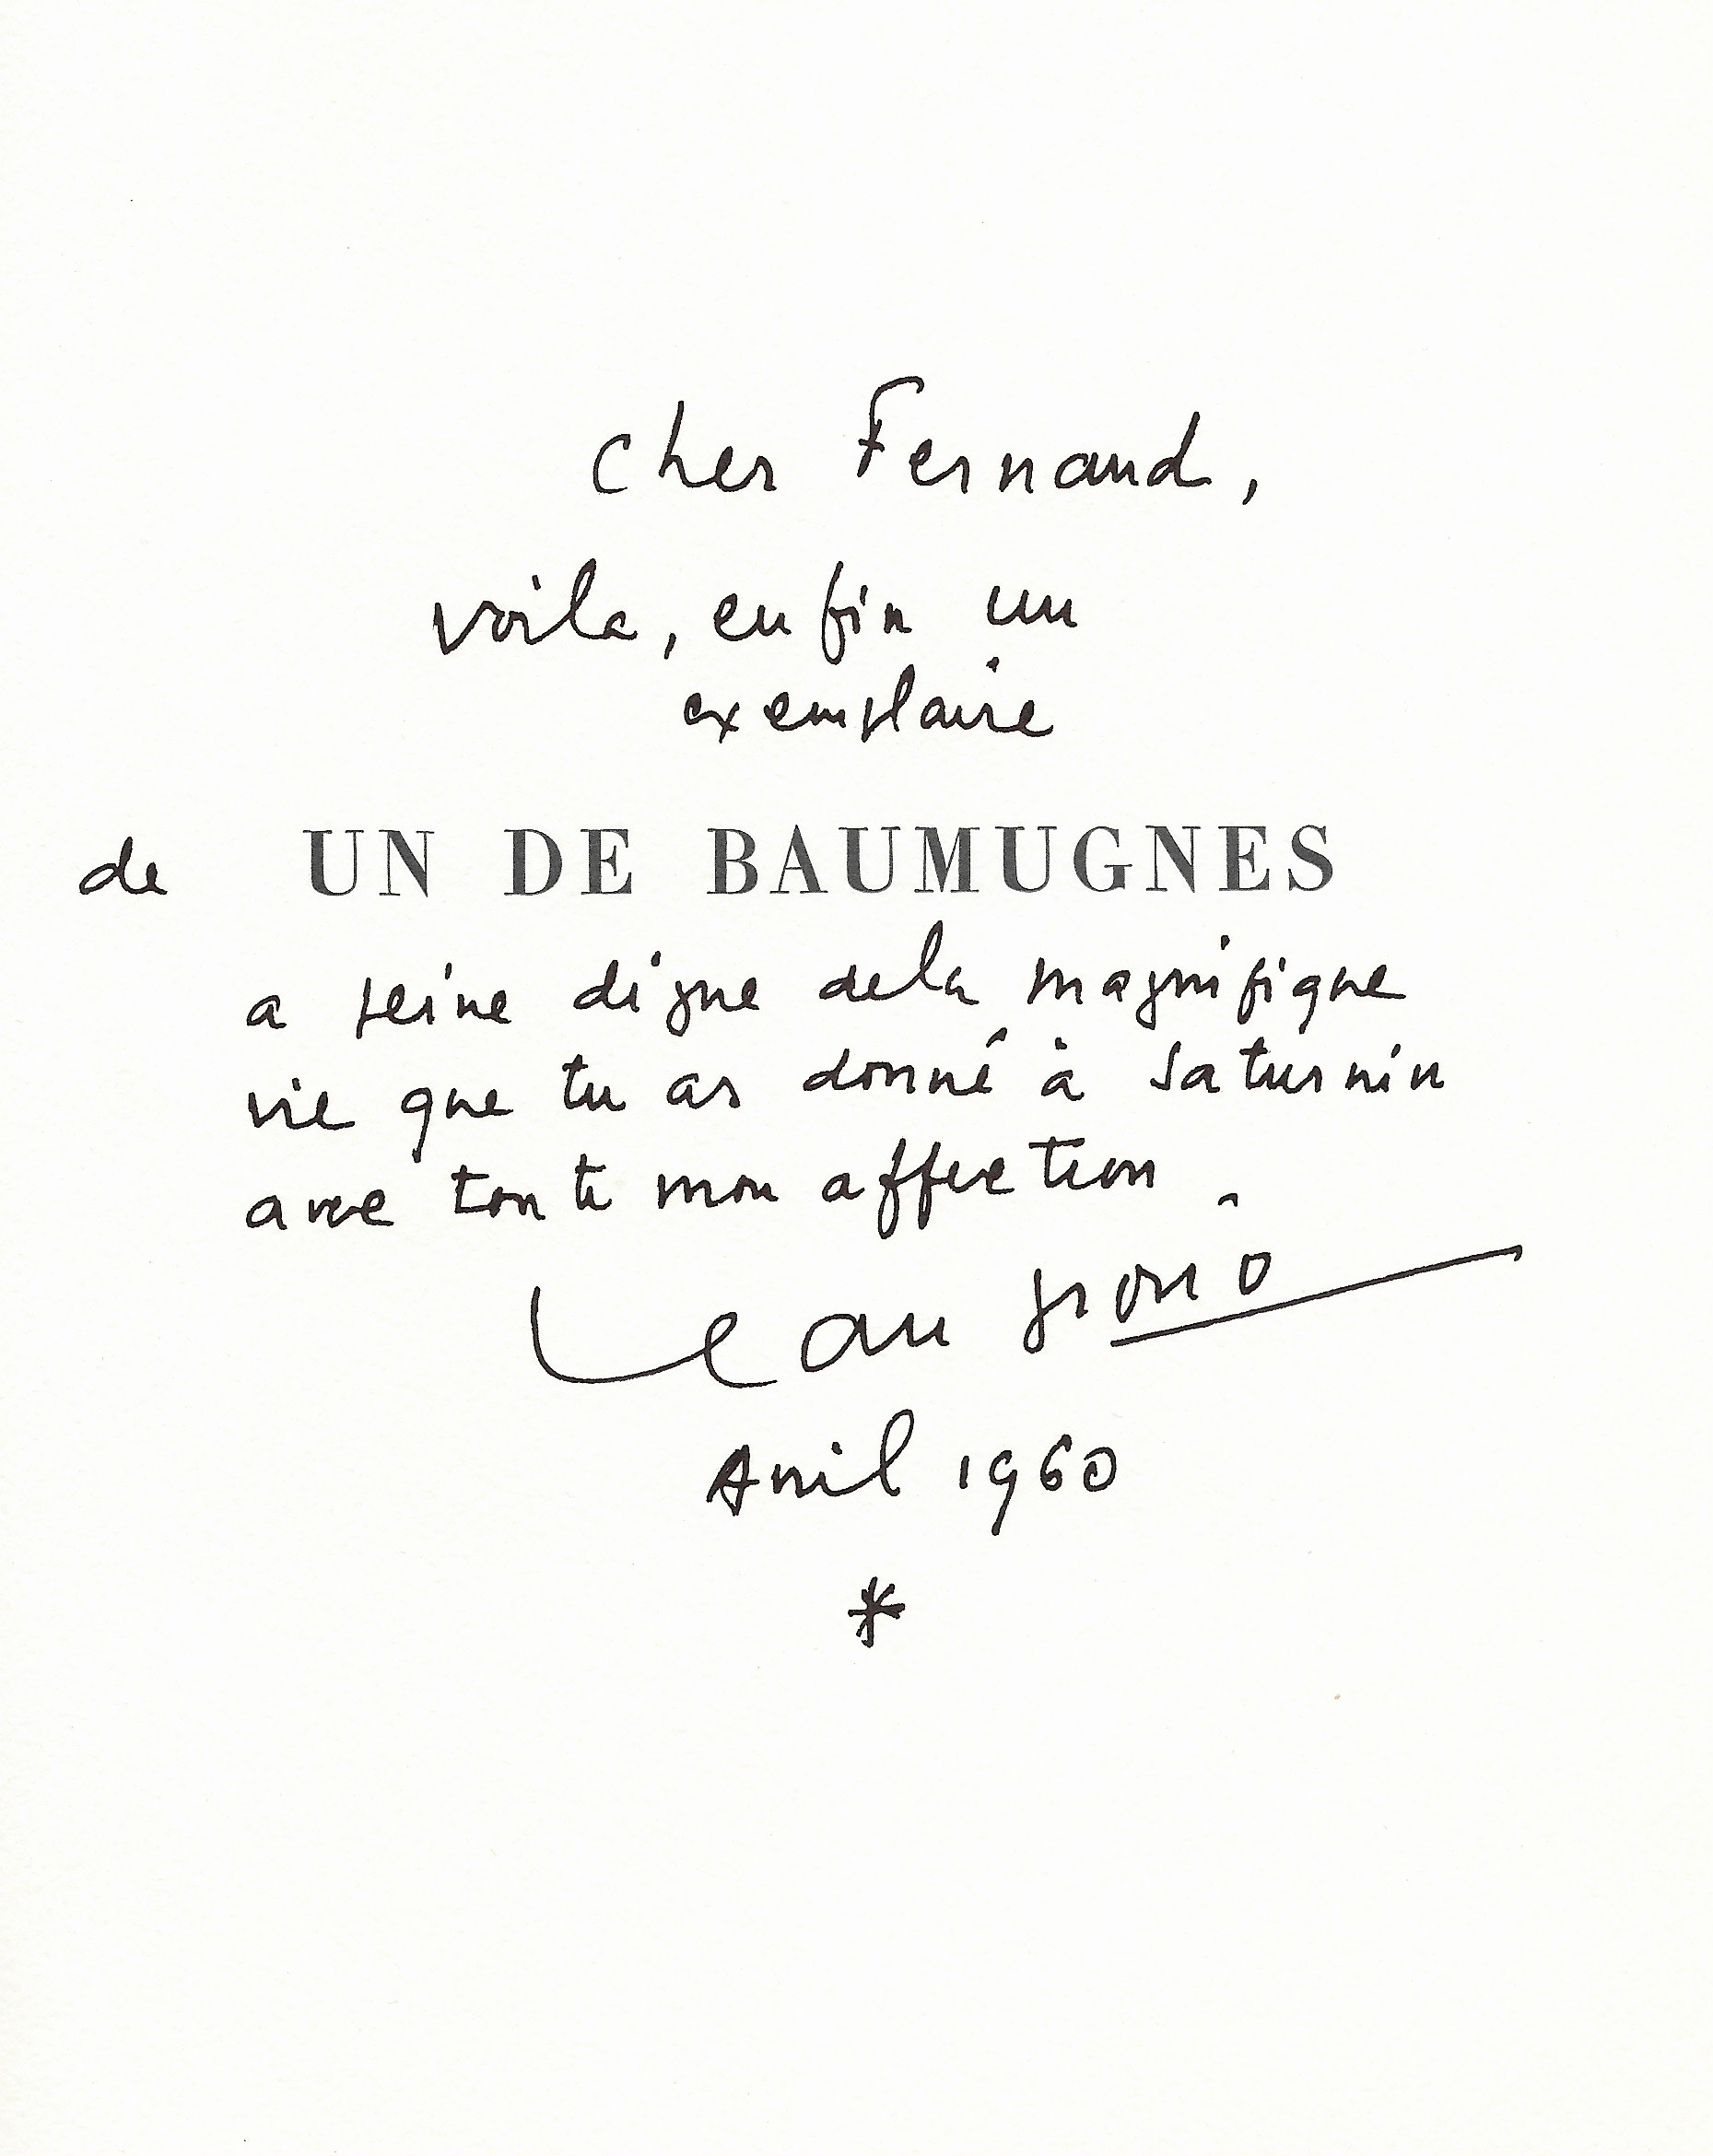 Cher Fernand,
voila, enfin un
exemplaire
de UN DE BAUMUGNES
a peine digne de la magnifique
vie que tu as donné à Saturnin
avec toute mon affection.
Jean Giono
Avril 1960
*